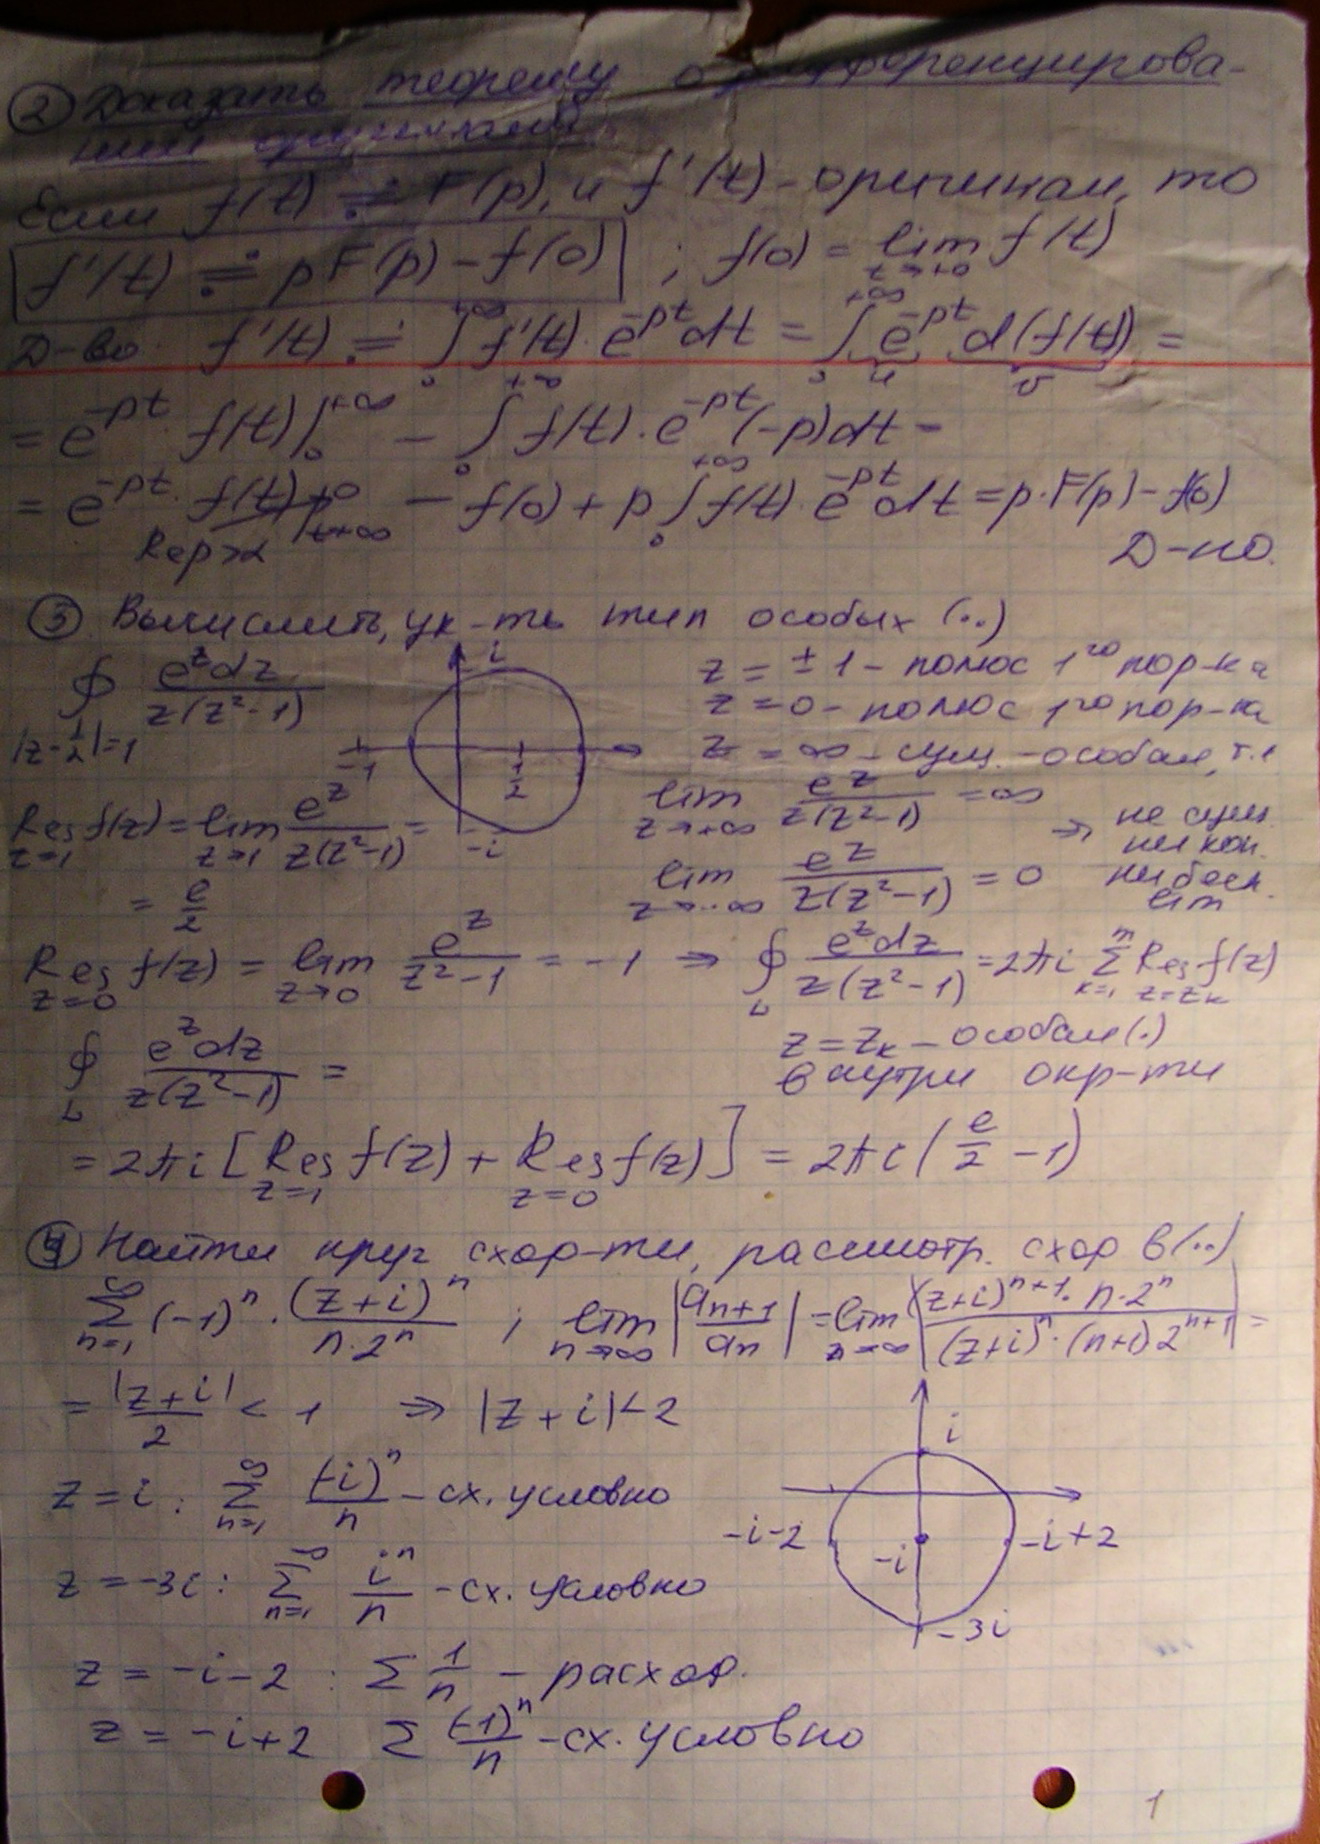 ② Доказать теорему о дифференцирова-
нии оригинала.
Если f(t) ≓ F(p), и f'(t) - оригинал, то
f'(t) ≓ pF(p) - f(0) ; f(0) = lim f(t)
t→+0
Д-во f'(t) ≓ ∫₀^{+∞} f'(t)·e^{-pt}dt = ∫₀^{+∞} e^{-pt} d(f(t)) =
u v
= e^{-pt} f(t)|₀^{+∞} - ∫₀^{+∞} f(t)·e^{-pt}(-p)dt =
= e^{-pt}·f(t)|_{t→+∞} →0 - f(0) + p∫₀^{+∞} f(t)·e^{-pt}dt = p·F(p) - f(0)
Rep>α Д-но.
③ Вычислить, ук-ть тип особых (..)
∮ e^z dz / z(z²-1)
|z-1/2|=1
i
-1 1/2
-i
z = ±1 - полюс 1го пор-ка
z = 0 - полюс 1го пор-ка
z = ∞ - сущ. - особая, т.к
lim_{z→+∞} e^z / z(z²-1) = ∞
lim_{z→-∞} e^z / z(z²-1) = 0
⇒ не сущ.
ни кон.
ни беск.
lim
Res_{z=1} f(z) = lim_{z→1} e^z / z(z²-1) =
= e/2
Res_{z=0} f(z) = lim_{z→0} e^z / z²-1 = -1 ⇒ ∮_L e^z dz / z(z²-1) = 2πi Σ_{k=1}^{m} Res_{z=z_k} f(z)
z = z_k - особая (.)
внутри окр-ти
∮_L e^z dz / z(z²-1) =
= 2πi [Res_{z=1} f(z) + Res_{z=0} f(z)] = 2πi (e/2 - 1)
④ Найти круг сход-ти, рассмотр. сход в (..)
Σ_{n=1}^{∞} (-1)^n · (z+i)^n / n·2^n ; lim_{n→∞} |a_{n+1} / a_n| = lim_{n→∞} |(z+i)^{n+1}·n·2^n / (z+i)^n·(n+1)·2^{n+1}| =
= |z+i| / 2 < 1 ⇒ |z+i|<2
i
-i-2 -i -i+2
-3i
z = i : Σ_{n=1}^{∞} (-i)^n / n - сх. условно
z = -3i : Σ_{n=1}^{∞} i^n / n - сх. условно
z = -i-2 : Σ 1/n - расход.
z = -i+2 Σ (-1)^n / n - сх. условно
1